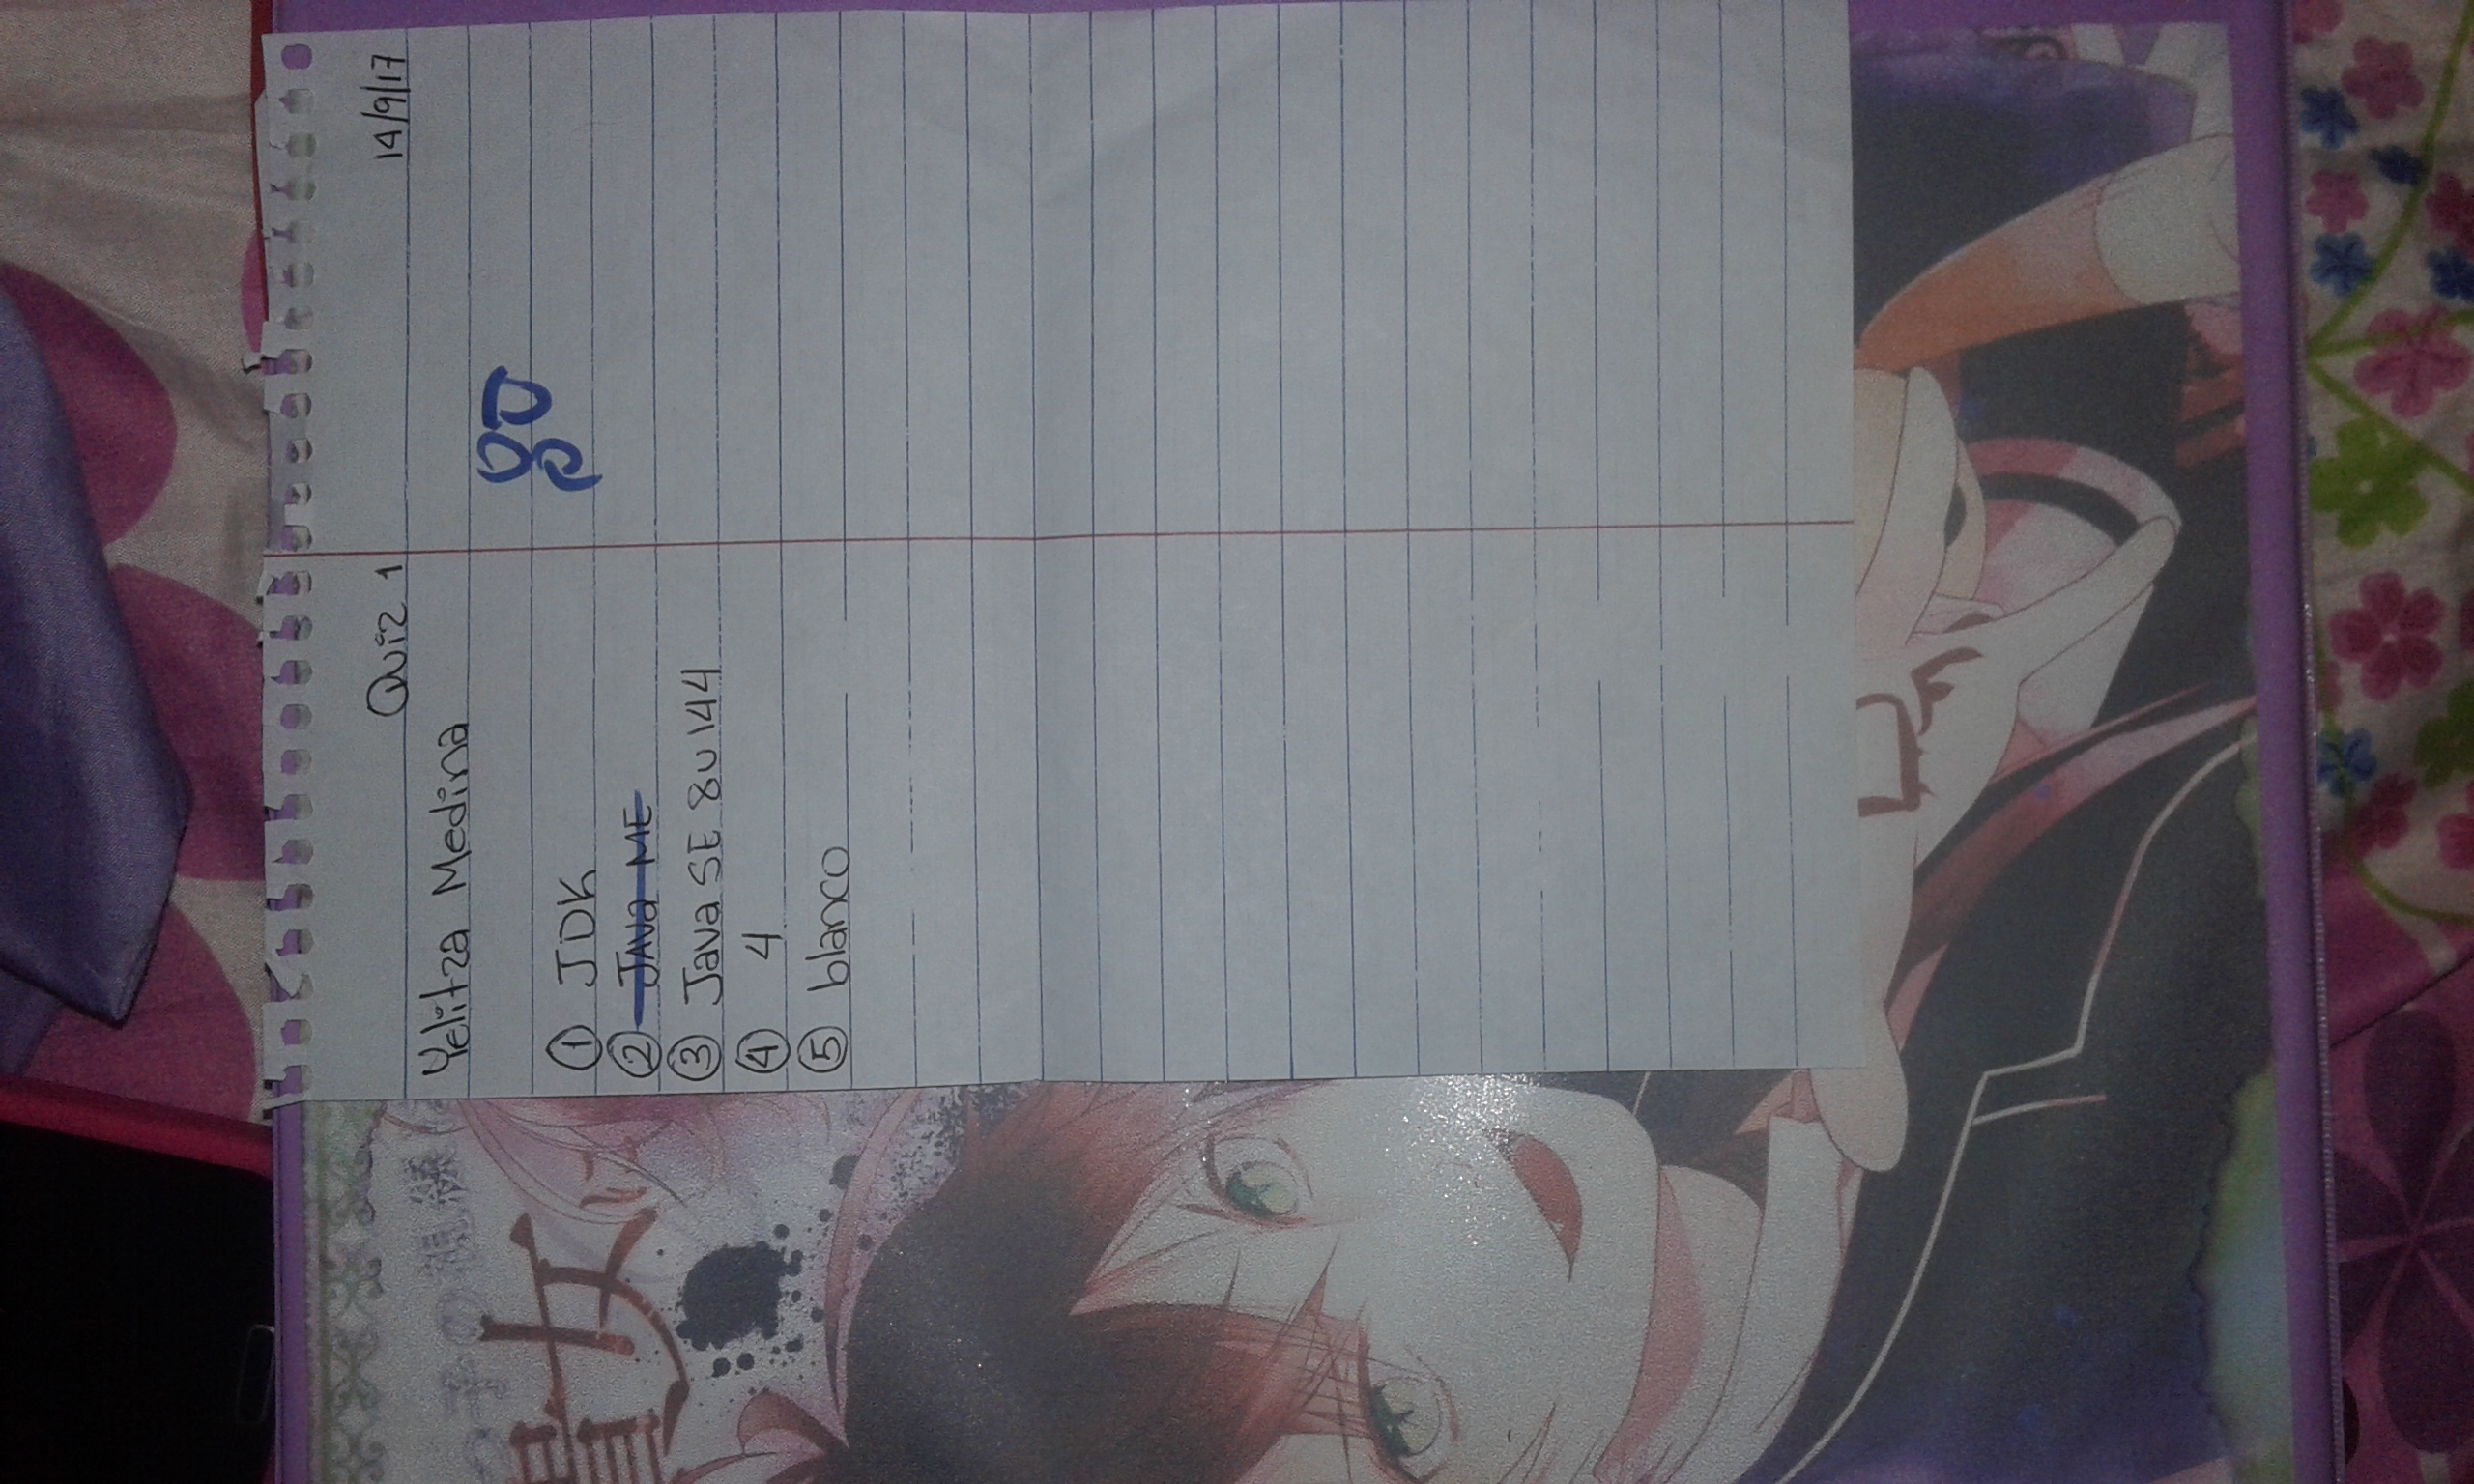 Quiz 1 14/9/17
Yelitza Medina
80
① JDK
② Java ME
③ Java SE 8U144
④ 4
⑤ blanco
女
は